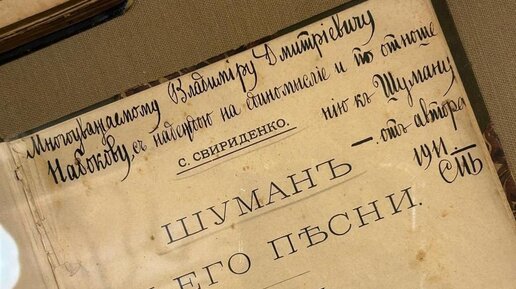 Многоуважаемому Владиміру Дмитріевичу
Набокову, съ надеждою на единомысліе и по отноше
С. СВИРИДЕНКО.
нію къ Шуману,
— отъ автора
1911
ШУМАНЪ
ЕГО ПѢСНИ.